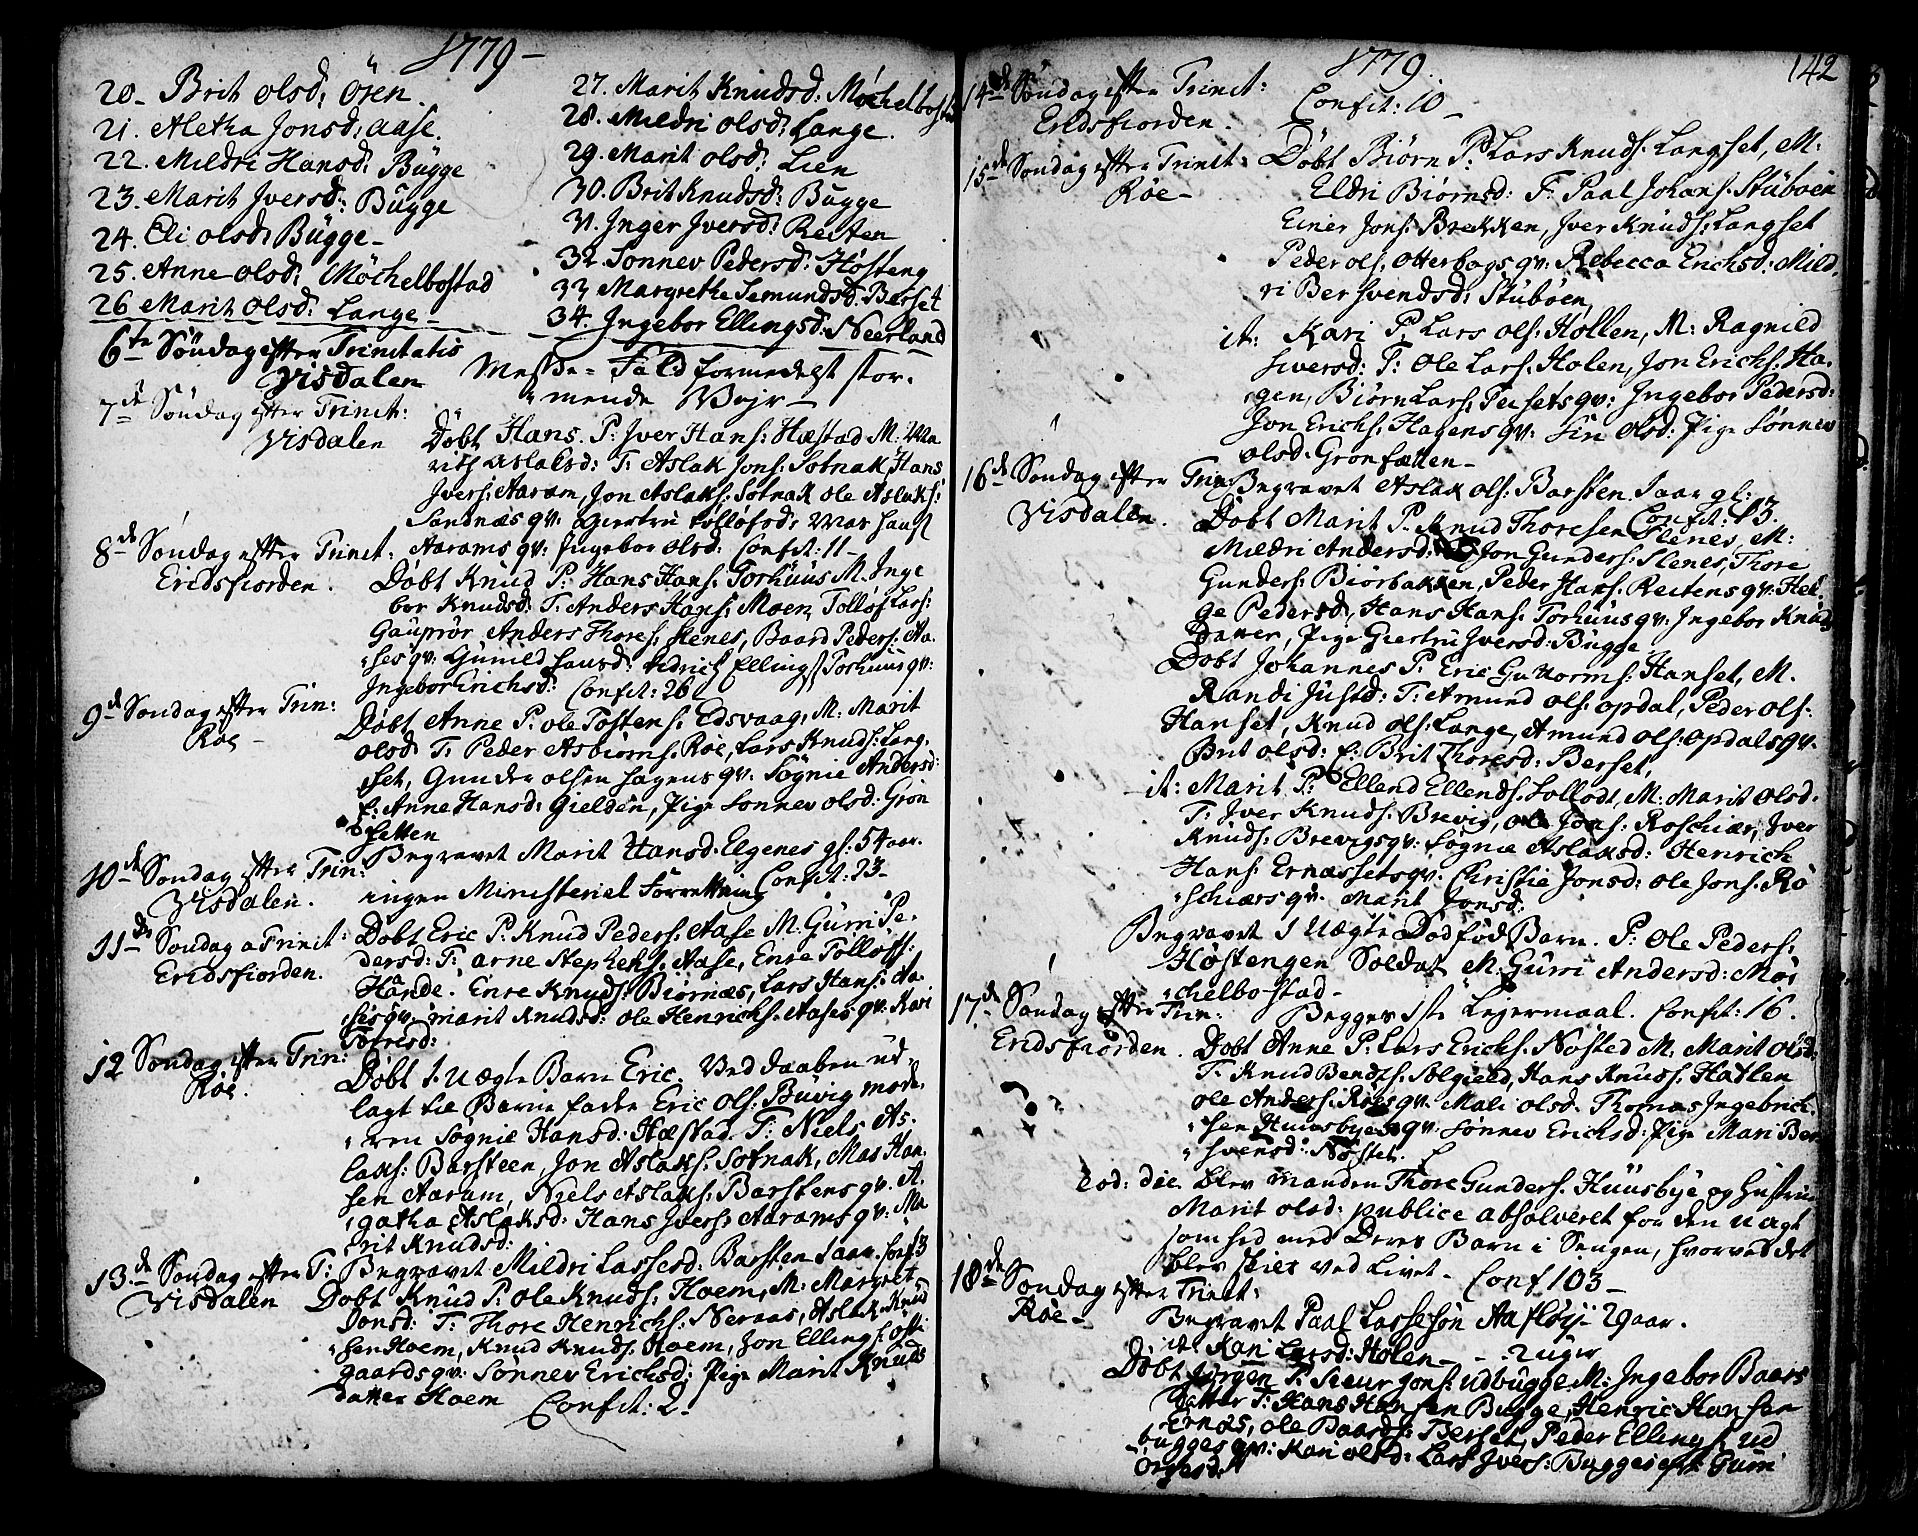 1779 –
20 – Brit olsd: Ören.
21. Aletha Jonsd: Aase.
22. Mildri Hansd: Bügge
23. Marit Jversd: Bügge
24. Eli olsd: Bügge –
25. Anne olsd: Möchelbostad
26 Marit olsd: Lange –
27. Marit Knudsd: Möchelbostad
28. Mildri olsd: Lange.
29. Marit olsd: Lien
30. Brit Knudsd: Bügge
31. Jnger Jversd: Reiten
32. Sonnev Pedersd: Hösteng
33 Margrethe Semundsd: Berset
34. Jngebor Ellingsd: Neerland
6te Söndag efter Trinitatis
Visdalen
Messe = Fald formedelst stor-
mende Vejr –
7de Söndag efter Trinit:
Visdalen
Döbt Hans. P: Jver Hans: Hæstad M: Ma
rith Aslaksd: T: Aslak Jons: Sotnak Hans
Jvers: Aaram, Jon Aslaks: Sotnak ole Aslaks:
Sandnæs qv: Giertru Tollofsd:
Aarams qv: Jngebor olsd: Confit: 11 –
8de Söndag efter Trinit:
Eridsfiorden.
Döbt Knud P: Hans Hans: Torhuus M. Jnge
bor Knudsd: T: Anders Hans: Moen, Tollof Lars:
Gauprør Anders Thores: Slenes, Baard Peders: Aa-
ses qv: Gunild Hansd: Torhuus qv:
Jngebor Erichsd: Confit: 26
9de Söndag efter Trin:
Röe –
Döbt Anne P: ole Tostens: Edsvaag: M: Marit
olsd T: Peder Asbiörns: Röe, Lars Knuds: Lang-
set, Gunder olsen Hagens qv: Sögnie Andersd:
f: Anne Hansd: Gielden, Pige Sonnev olsd: Grön
fetten
Begravet Marit Hansd: Elgenes gl: 54 aar.
10de Söndag efter Trin:
Visdalen.
ingen Ministerial Forretning Confit: 23 –
11de Söndag a Trinit:
Eridsfiorden.
Döbt Eric P: Knud Peders: Aase M. Gürri Pe-
dersd: T: Arne Stephens: Aase, Enre Tollofs:
Hande. Enre Knuds: Biörnæs, Lars Hans: Aa-
ses qv: Marit Knudsd: ole Henrichs: Aases qv: Kari
Tostensd:
12 Söndag efter Trin:
Röe.
Döbt 1 uægte Barn Eric, Ved daaben ud-
lagt til Barne fader Eric ols: Büvig mode-
ren Sögnie Hansd: Hæstad. T: Niels As-
laks: Barsteen, Jon Aslaks: Sotnak, Mas Han-
sen Aaram, Niels Aslaks: Barstens qv: A-
gatha Aslaksd: Hans Jvers: Aarams qv: Ma
rit Knudsd:
13de Söndag efter T:
Visdalen
Begravet Mildri Lassesd: Barsten 1 aar. Conf: 3
Döbt Knud P: ole Knuds: Hoem, M: Margret
Jonsd: T: Thore Henrichs: Neraas, Aslak Knud
sen Hoem, Knud Knuds: Hoem, Jon Ellings: öst
gaards qv: Sönnev Erichsd: Pige Marit Knuds
datter Hoem Confit: 2 –
1779
142
14de Söndag efter Trinit:
Eridsfiorden.
Confit: 10 –
15de Söndag efter Trinit:
Röe –
Döbt Biörn P: Lars Knuds: Langset, M:
Eldri Biörnsd: T: Paal Johans: Stüböen
Einer Jons: Brekken, Jver Knuds: Langset
Peder ols: otterbogs qv: Rebecca Erichsd: Mild-
ri Ber Svendsd: Stüböen,
it: Kari P: Lars ols: Hollen, M: Ragnild
Siversd: T: ole Lars: Holen, Jon Erichs: Ha-
gen, Biörn Lars: Tusets qv: Jngebor Pedersd:
Jon Erichs: Hagens qv: Siri olsd: Pige Sönnev
olsd. Gronfætten –
16de Söndag efter Trin:
Visdalen.
Begravet Aslak ols: Barsten 1 aar gl:
Confit: 13.
Döbt Marit P: Knud Thoresen Slenes, M:
Mildri Andersd: T: Jon Gunders: Slenes, Thore
Gunders: Biörbakken, Peder Haks: Reitens qv: Hel-
ge Pedersd:, Hans Hans: Torhuus qv: Jngebor Knuds
Daater, Pige Giertru Jversd: Bügge
Döbt Johannes P: Eric Guttorms: Hanset, M.
Randi Justd: T: Amund ols: opdal, Peder ols:
Hanset, Knud ols: Lange, Amund ols: opdals qv.
Brit olsd: f: Brit Thoresd: Berset,
it: Marit P: Ellend Ellends: Solbodt, M: Marit olsd.
T: Jver Knuds: Brevig, ole Jons: Roschiær, Jver
Knuds: Brevigs qv: Sögnie Aslaksd: Henrich
Hans: Ernæssets qv: Christie Jonsd: ole Jons: Rö
schiærs qv: Marit Jonsd:
Begravet 1 Uægte Dödfød Barn. P: ole Peders:
Höstengen Soldat M: Gürri Andersd: Mö
chelbostad –
Begges 1ste Lejermaal. Confit: 16.
17de Söndag efter Trin:
Eridsfiorden.
Döbt Anne P: Lars Erichs: Nösted M: Marit olsd:
T: Knud Bendts: Solgield, Hans Knuds: Hatlen
ole Anders: Röes qv: Mali olsd. Thomas Jngebrich-
sen Huusbyes qv: Sönnev Erichsd: Pige Mari Ber
Svensd: Nöstet.
eod: die blev Manden Thore Gunders: Huusbye og Hustru
Marit olsd: publice absolveret for den uagt
somhed med Deres Barn i Sengen, hvorved det
blev skilt ved Livet – Conf 103 –
18de Söndag efter Trinit:
Röe –
Begravet Paal Lassesön Aasböe 29 aar.
it Kari Larsd: Holen – – 2 uger
Döbt Jörgen P: Siur Jons: udbügge M: Jngebor Baars
datter T: Hans Hansen Bügge, Henric Hansen
Ernæs, ole Baards: Berset, Peder Ellings: ud
bugges qv: Kari olsd: Lars Jvers: Bugges qv: Gürri